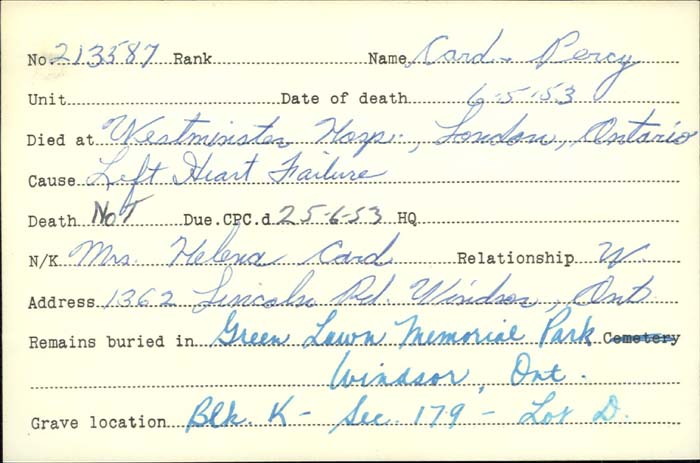 No. 213587 Rank Name Card - Percy
Unit Date of death 6-5-53
Died at Westminster Hosp., London, Ontario
Cause Left Heart Failure
Death Not Due. CPC.d 25-6-53 HQ
N/K Mrs. Helena Card Relationship W.
Address 1362 Lincoln Rd. Windsor, Ont
Remains buried in Green Lawn Memorial Park Cemetery
Windsor, Ont.
Grave location Blk. K - Sec. 179 - Lot D.